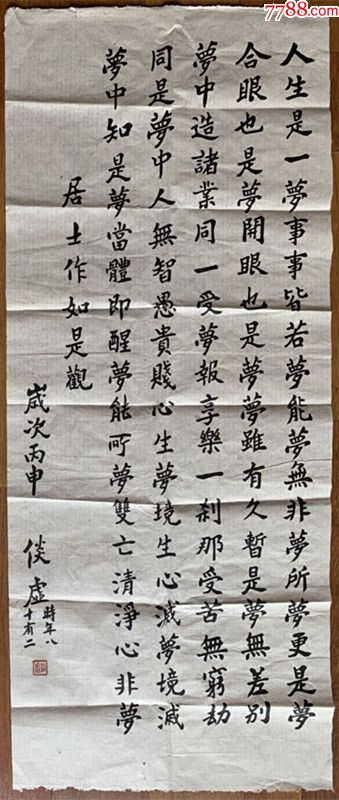 7788.com
人生是一夢事事皆若夢能夢無非夢所夢更是夢
合眼也是夢開眼也是夢夢雖有久暫是夢無差別
夢中造諸業同一受夢報享樂一剎那受苦無窮劫
同是夢中人無智愚貴賤心生夢境生心滅夢境滅
夢中知是夢當體即醒夢能所夢雙亡清淨心非夢
居士作如是觀
歲次丙申
倓虛
時年八
十有二